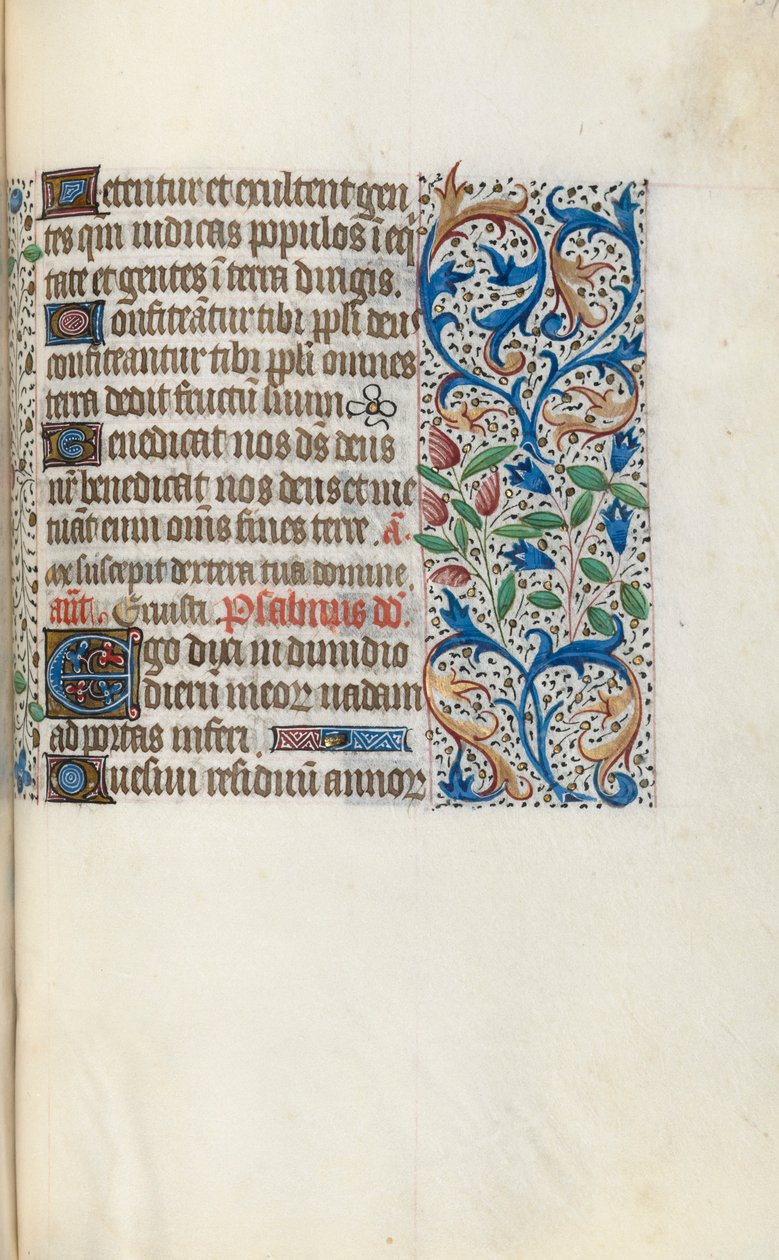 Letentur et exultent gen
tes qm̄ iudicas populos ī eq̄
tate et gentes ī terra dirigis.
Confiteātur tibi pp̄li deus
confiteantur tibi pp̄li omnes
terra dedit fructū suum
Benedicat nos dn̄s deus
nr̄ benedicat nos deus et me
tuāt eum om̄s fines terre. ā.
Me suscepit dextera tua domine.
añt. Eruisti. Psalmus dd̄.
Ego dixi in dimidio
dierū meoꝝ uadam
ad portas inferi
Quesiui residuū annoꝝ